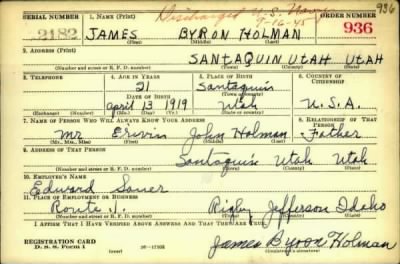 Discharged U.S. Navy 936
SERIAL NUMBER 1. NAME (Print) 9-16-45 ORDER NUMBER
2182 JAMES BYRON HOLMAN 936
(First) (Middle) (Last)
2. ADDRESS (Print)
SANTAQUIN UTAH UTAH
(Number and street or R. F. D. number) (Town) (County) (State)
3. TELEPHONE 4. AGE IN YEARS 5. PLACE OF BIRTH 6. COUNTRY OF CITIZENSHIP
21 Santaquin
DATE OF BIRTH (Town or county)
April 13 1919 Utah U.S.A.
(Exchange) (Number) (Mo.) (Day) (Yr.) (State or country)
7. NAME OF PERSON WHO WILL ALWAYS KNOW YOUR ADDRESS 8. RELATIONSHIP OF THAT PERSON
Mr Ervin John Holman Father
(Mr., Mrs., Miss) (First) (Middle) (Last)
9. ADDRESS OF THAT PERSON
Santaquin Utah Utah
(Number and street or R. F. D. number) (Town) (County) (State)
10. EMPLOYER'S NAME
Edward Sauer
11. PLACE OF EMPLOYMENT OR BUSINESS
Route 1. Rigby Jefferson Idaho
(Number and street or R. F. D. number) (Town) (County) (State)
I AFFIRM THAT I HAVE VERIFIED ABOVE ANSWERS AND THAT THEY ARE TRUE.
REGISTRATION CARD
D. S. S. Form 1 (over) 16—17105 James Byron Holman
(Registrant's signature)